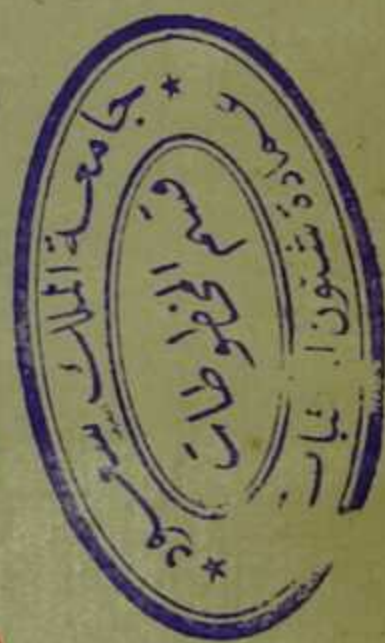 * جامعة الملك سعود *
قسم المخطوطات
عمادة شئون